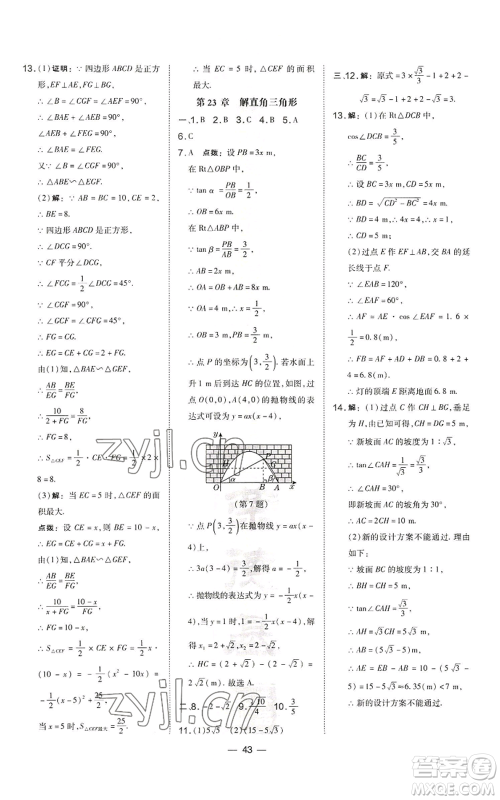 13. (1)证明：∵ 四边形 ABCD 是正方
形，EF⊥AE，FG⊥BG，
∴ ∠ABE＝∠AEF＝∠DCG＝
∠BGF＝90°.
∴ ∠BAE＋∠AEB＝90°，
∠AEB＋∠FEG＝90°.
∴ ∠BAE＝∠FEG.
∴ △ABE∽△EGF.
(2)解：∵ AB＝BC＝10，CE＝2，
∴ BE＝8.
∵ 四边形 ABCD 是正方形，
∴ ∠DCG＝90°.
∵ CF 平分∠DCG，
∴ ∠FCG＝1/2∠DCG＝45°.
∴ ∠CFG＝45°.
∴ ∠FCG＝∠CFG＝45°.
∴ GF＝GC.
由(1)知，△BAE∽△GEF，
∴ AB/EG＝BE/FG.
∴ 10/(2＋FG)＝8/FG.
∴ FG＝8.
∴ S△CEF＝1/2·CE·FG＝1/2×2×
8＝8.
(3)解：当 EC＝5 时，△CEF 的面积
最大.
点拨：设 EC＝x，则 BE＝10－x.
由(1)知，△BAE∽△GEF，
∴ AB/EG＝BE/FG.
∴ 10/(x＋FG)＝(10－x)/FG.
∴ FG＝10－x.
∴ S△CEF＝1/2·CE·FG＝1/2·x·
(10－x)＝－1/2(x²－10x)＝
－1/2(x－5)²＋25/2.
当 x＝5 时，S△CEF最大＝25/2.
∴ 当 EC＝5 时，△CEF 的面积
最大.
第 23 章 解直角三角形
一、1. B 2. B 3. B 4. B 5. A
6. C
7. A 点拨：设 PB＝3x m，
在 Rt△OBP 中，
∵ tan α＝PB/OB＝1/2，
∴ OB＝6x m.
在 Rt△ABP 中，
∵ tan β＝PB/AB＝3/2，
∴ AB＝2x m，
∴ OA＝OB＋AB＝8x m，
∴ 8x＝4，解得 x＝1/2，
∴ 点 P 的坐标为(3，3/2). 若水面上
升 1 m 后到达 BC 位置，如图，过
点 O(0,0)，A(4,0)的抛物线的表
达式可设为 y＝ax(x－4)，
y
P
H
C
O
B
A
x
(第 7 题)
∵ 点 P(3，3/2)在抛物线 y＝ax(x－
4)上，
∴ 3a(3－4)＝3/2，解得 a＝－1/2.
∴ 抛物线的表达式为 y＝－1/2x(x－
4). 当 y＝1 时，－1/2x(x－4)＝1，解
得 x₁＝2＋√2，x₂＝2－√2，
∴ HC＝(2＋√2)－(2－√2)＝
2√2(m).
二、8. －2－√2 9. 2√10/4 10. 3/5
11. (1)5√3 (2)(15－5√3)
三、12. 解：原式＝√3/3×√3－2×√3/2＋
√3/2＝1－√3＋√3/2＝1－√3/2.
13. 解：(1)在 Rt△DCB 中，
cos∠DCB＝3/5，
∴ BC/CD＝3/5.
∴ 设 BC＝3x m，CD＝5x m.
∴ BD＝√(CD²－BC²)＝4x m.
∵ BD＝4 m，∴ x＝1，
∴ CD＝5 m；
(2)过点 E 作 EF⊥AB，交 BA 的延
长线于点 F.
∵ ∠EAB＝120°，
∴ ∠EAF＝60°，
∴ AF＝AE·cos∠EAF＝1.6×
1/2＝0.8(m)，
∴ FB＝AF＋AD＋DB＝0.8＋2＋
4＝6.8(m).
∴ 灯的顶端 E 距离地面 6.8 m.
14. 解：(1)过点 C 作 CH⊥BG，垂足
为 H，
∵ 新坡面 AC 的坡度为 1∶√3，
∴ tan∠CAH＝1/√3＝√3/3，
∴ ∠CAH＝30°，
即新坡面的坡角为 30°.
(2)新的设计方案不能通过. 理由
如下：
∵ 坡面 BC 的坡度为 1∶1，
∴ BH＝CH＝5 m.
∵ tan∠CAH＝√3/3，
∴ AH＝√3CH＝5√3 m，
∴ AB＝(5√3－5)m，
∴ AE＝EB－AB＝10－(5√3－
5)＝15－5√3≈6.35(m)＜7 m，
∴ 新的设计方案不能通过.
— 43 —
zyjl.cn
zyjl.cn
作业精灵